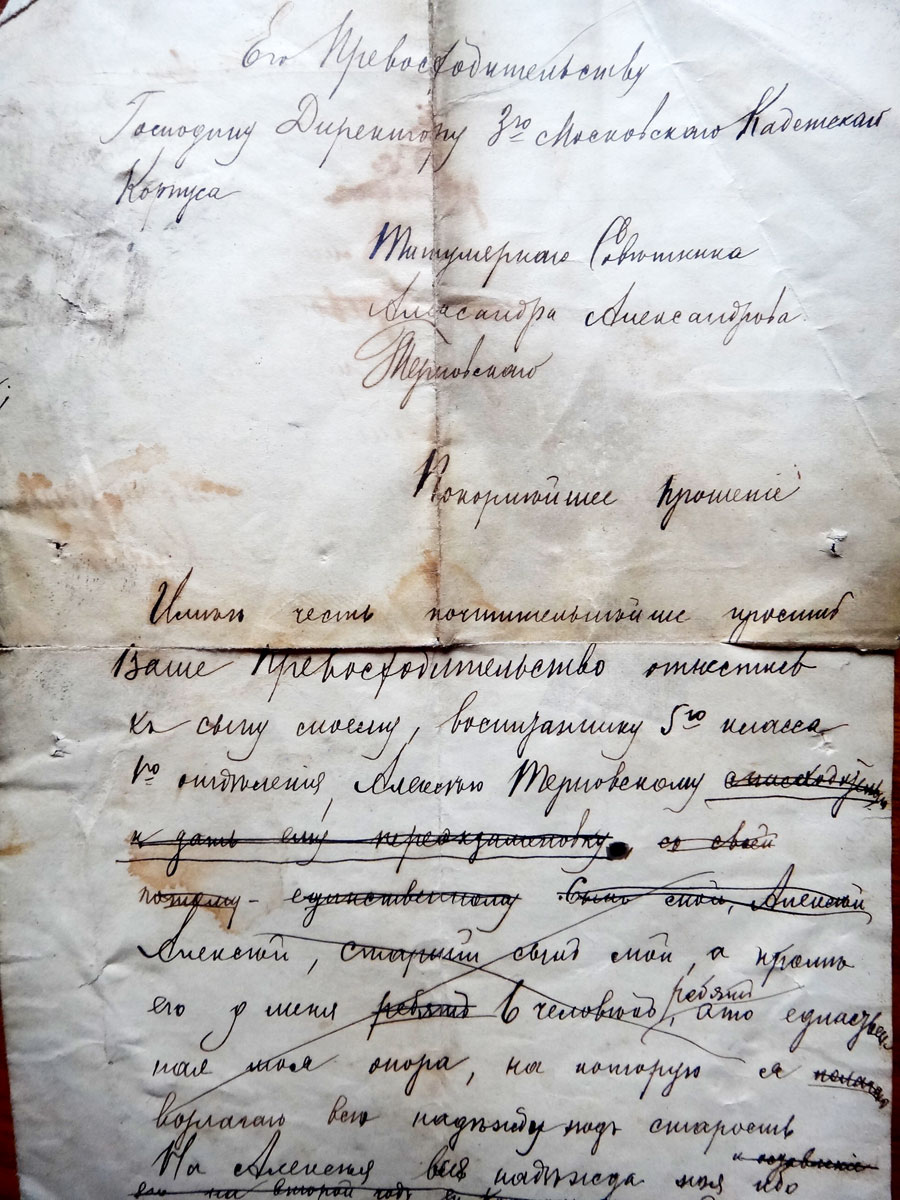 Его Превосходительству
Господину Директору 3го Московского Кадетскаго
Корпуса
Титулярнаго Совѣтника
Александра Александрова
Терновскаго
Покорнѣйшее прошеніе
Имѣю честь почтительнѣйше просить
Ваше Превосходительство отнестись
къ сыну моему, воспитаннику 5го класса
1го отдѣленія, Алексѣю Терновскому снисходительно
и дать ему переэкзаменовку со своей
потому - единственному Сынъ мой, Алексѣй
Алексѣй, старшій сынъ мой, а кромѣ
его у меня ребятъ 6 человѣкъ ребятъ, это единствен
ная моя опора, на которую я полагаю
возлагаю всю надежду подъ старость
На Алексѣя вся надежда моя ибо и оставленіе
его на второй годъ